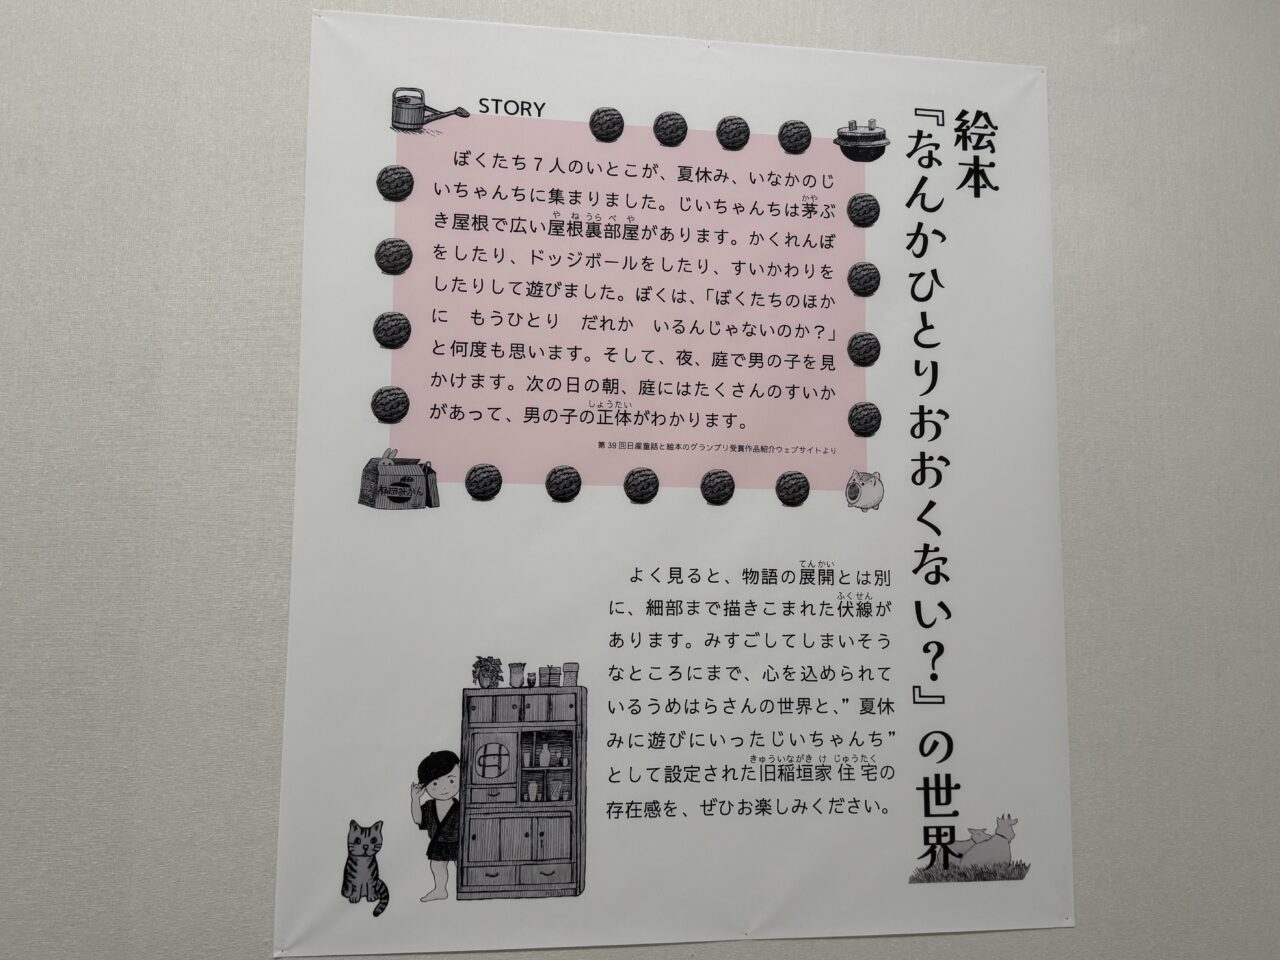 絵本
『なんかひとりおおくない？』の世界
STORY
ぼくたち７人のいとこが、夏休み、いなかのじ
いちゃんちに集まりました。じいちゃんちは茅ぶ
き屋根で広い屋根裏部屋があります。かくれんぼ
をしたり、ドッジボールをしたり、すいかわりを
したりして遊びました。ぼくは、「ぼくたちのほか
に　もうひとり　だれか　いるんじゃないのか？」
と何度も思います。そして、夜、庭で男の子を見
かけます。次の日の朝、庭にはたくさんのすいか
があって、男の子の正体がわかります。
第39回日産童話と絵本のグランプリ受賞作品紹介ウェブサイトより
よく見ると、物語の展開とは別
に、細部まで描きこまれた伏線が
あります。みすごしてしまいそう
なところにまで、心を込められて
いるうめはらさんの世界と、”夏休
みに遊びにいったじいちゃんち”
として設定された旧稲垣家住宅の
存在感を、ぜひお楽しみください。